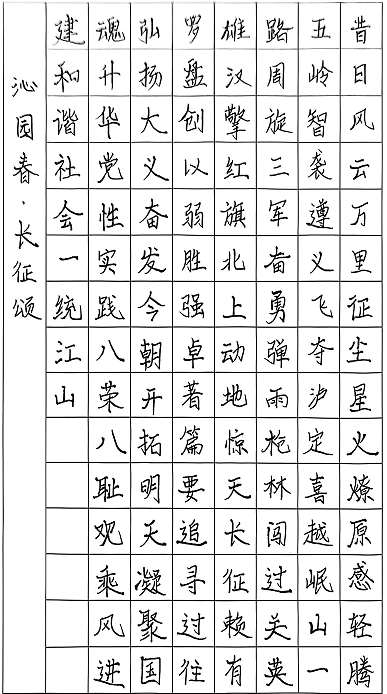 昔日风云万里征尘星火燎原感轻腾
五岭智袭遵义飞夺泸定喜越岷山一
路周旋三军奋勇弹雨枪林闯过关英
雄汉擎红旗北上动地惊天长征赖有
罗盘创以弱胜强卓著篇要追寻过往
弘扬大义奋发今朝开拓明天凝聚国
魂升华党性实践八荣八耻观乘风进
建和谐社会一统江山
沁园春·长征颂